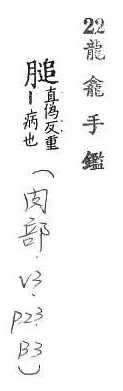 22龍龕手鑑
膇直偽反重
ー病也
(肉部.V3.P23.B3)